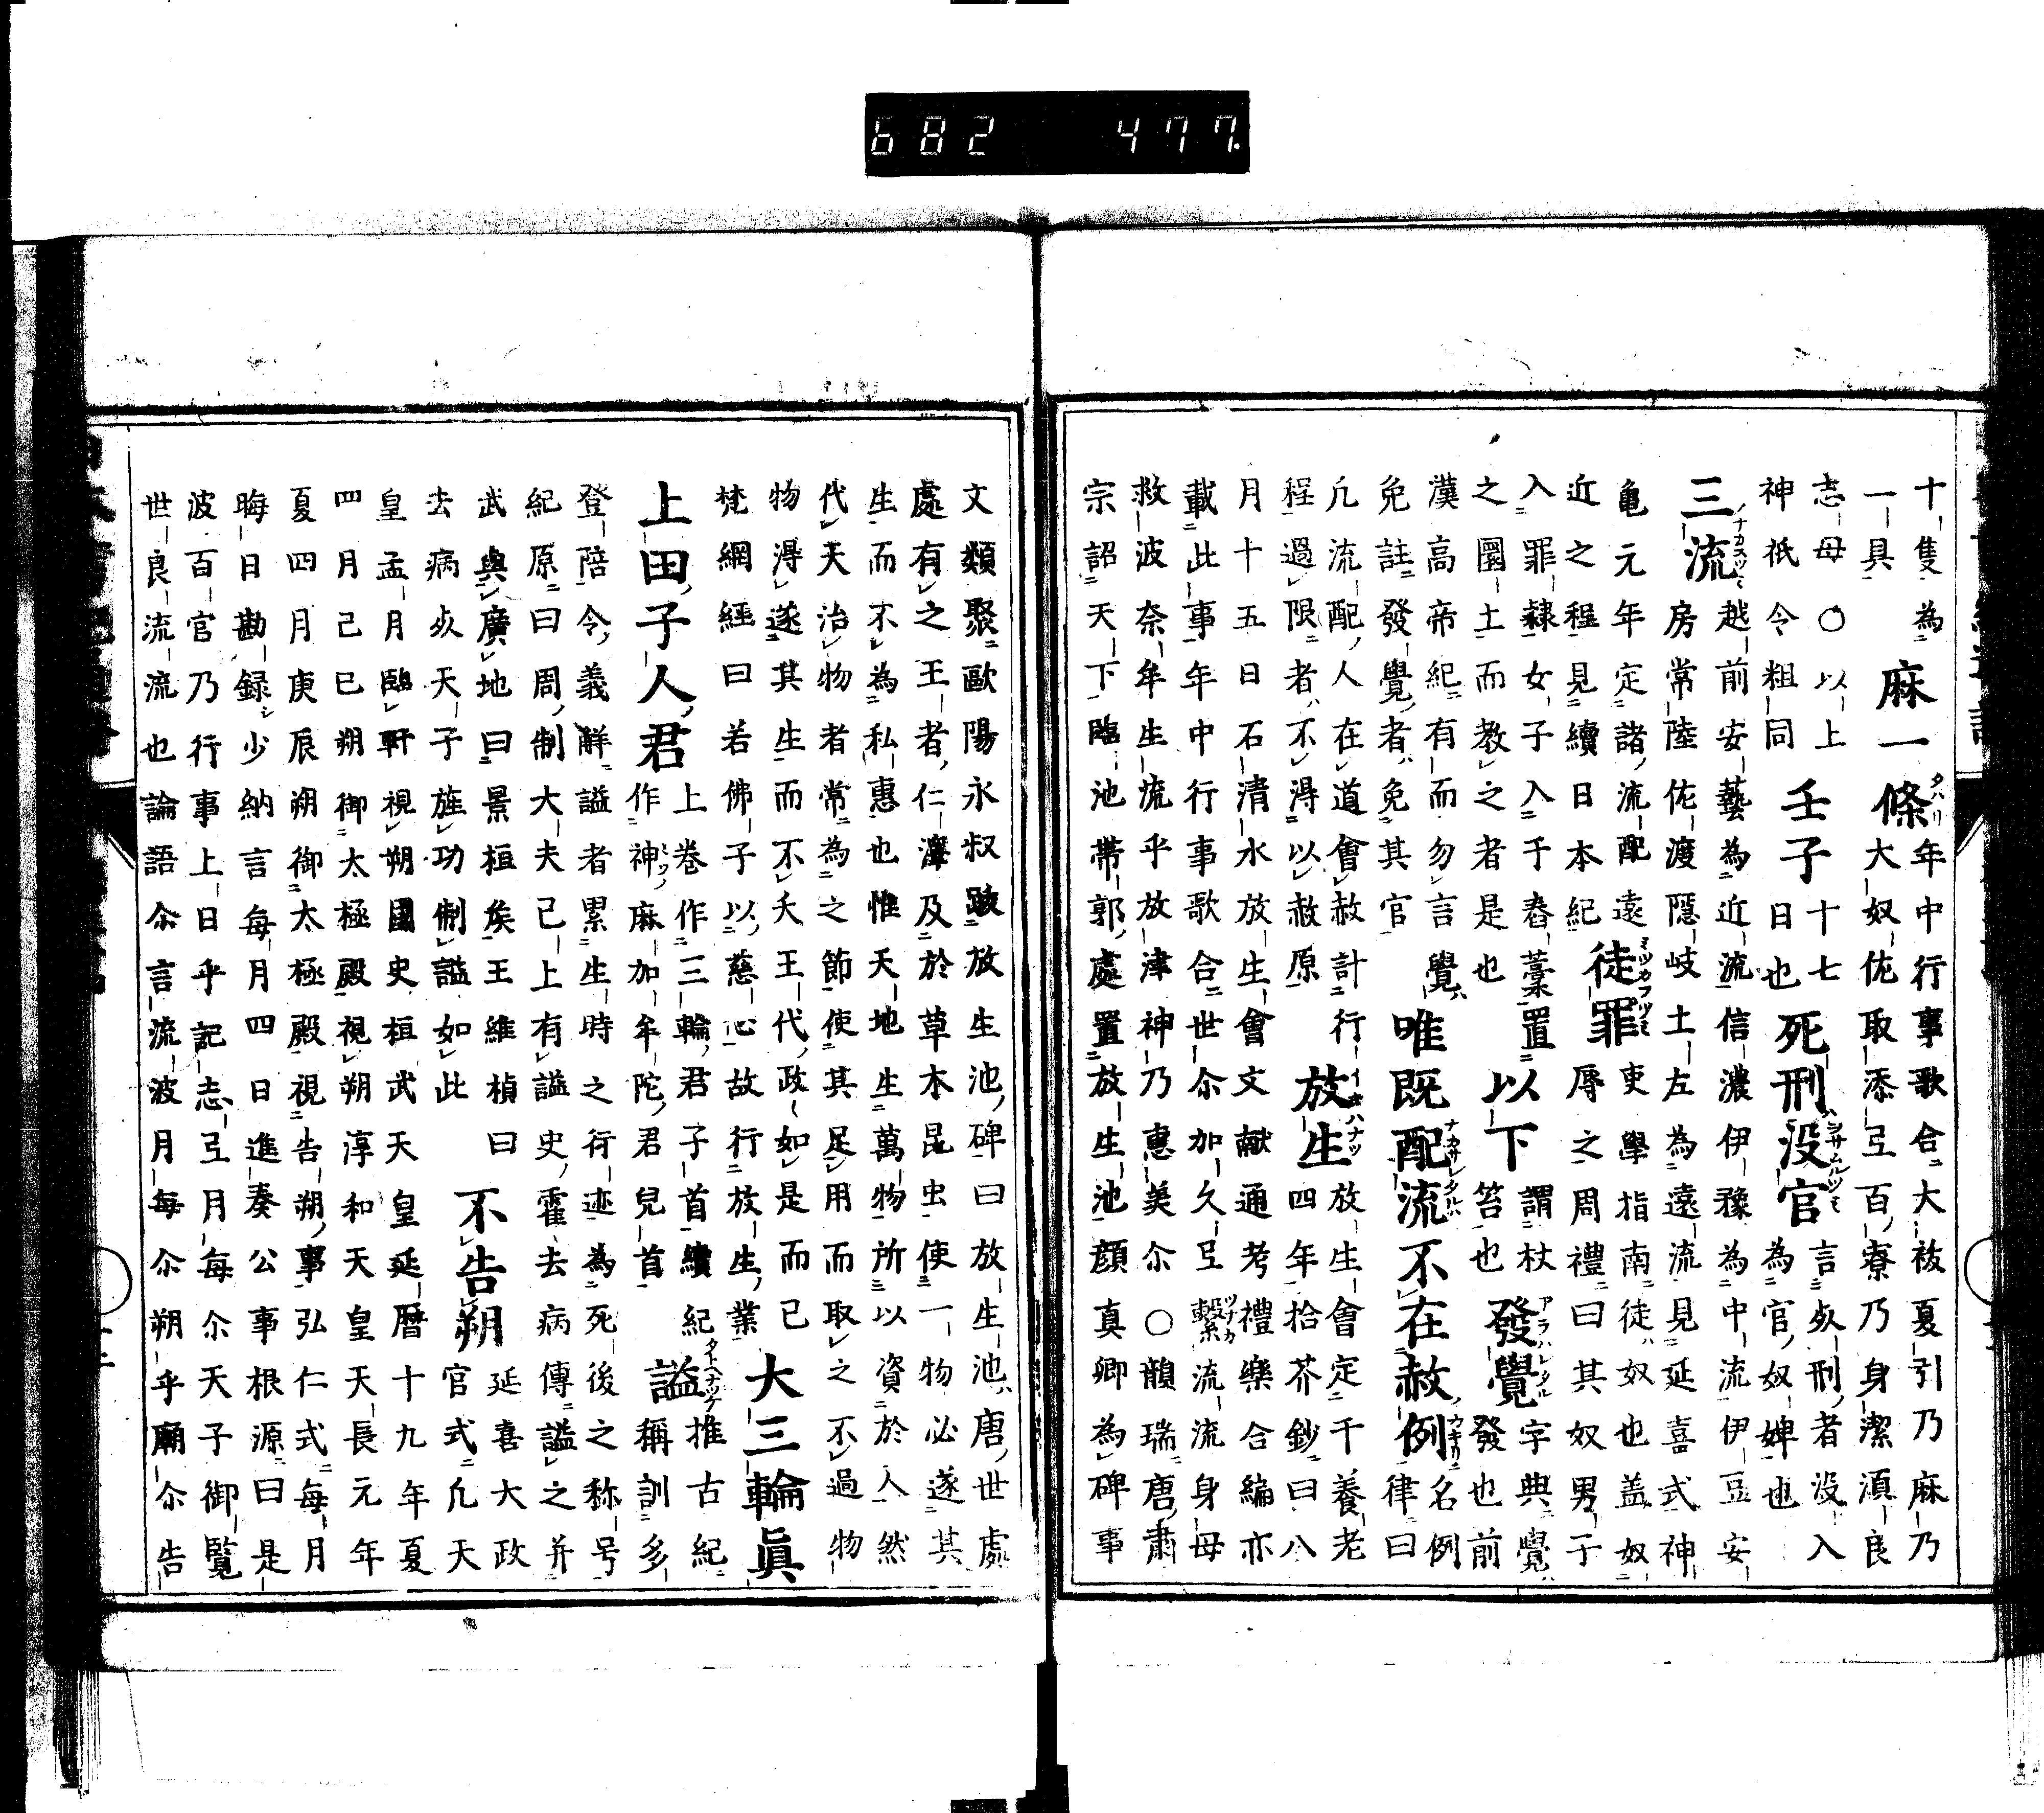 十隻為
一具
麻一條
年中行事歌合大祓夏引乃麻乃
大奴佐取添弖百寮乃身潔湏良
志母○以上
神祇令粗同
壬子
十七
日也
死刑没官
言処刑者没入
為官奴婢也
三流
越前安藝為近流信濃伊豫為中流伊豆安
房常陸佐渡隱岐土左為遠流見延喜式神
龜元年定諸流配遠
近之程見續日本紀
徒罪
吏學指南徒奴也蓋奴
辱之周禮曰其奴男子
入罪隸女子入于舂藁置
之圜土而教之者是也
以下
謂杖
笞也
發覺
字典覺
發也前
漢高帝紀有而勿言覺
免註發覺者免其官
唯既配流不在赦例
名例
律曰
凡流配人在道會赦計行
程過限者不得以赦原
放生
放生會定千養老
四年拾芥鈔曰八
月十五日石清水放生會文献通考禮樂合編亦
載此事年中行事歌合世尓加久弖繫流流身母
救波奈牟生流乎放津神乃惠美尓○韻瑞唐肅
宗詔天下臨池帶郭處置放生池顔真卿為碑事
文類聚歐陽永叔跋放生池碑曰放生池唐世處
處有之王者仁澤及於草木昆虫使一物必遂其
生而不為私惠也惟天地生萬物所以資於人然
代天治物者常為之節使其足用而取之不過物
物得遂其生而不夭王代政如是而已
梵網經曰若佛子以慈心故行放生業
大三輪眞
上田子人君
上卷作三輪君子首續紀
作神麻加牟陀君兒首
諡
推古紀
稱訓多
登陪令義解諡者累生時之行迹為死後之称号
紀原曰周制大夫已上有諡史霍去病傳諡之并
武與廣地曰景桓侯王維楨曰
去病処天子旌功制諡如此
不告朔
延喜大政
官式凡天
皇孟月臨軒視朔國史桓武天皇延暦十九年夏
四月己巳朔御太極殿視朔淳和天皇天長元年
夏四月庚辰朔御太極殿視告朔事弘仁式每月
晦日勘録少納言每月四日進奏公事根源曰是
波百官乃行事上日乎記志弖月每尓天子御覧
世良流流也論語尓言流波月每尓朔乎廟尓告
682 477.